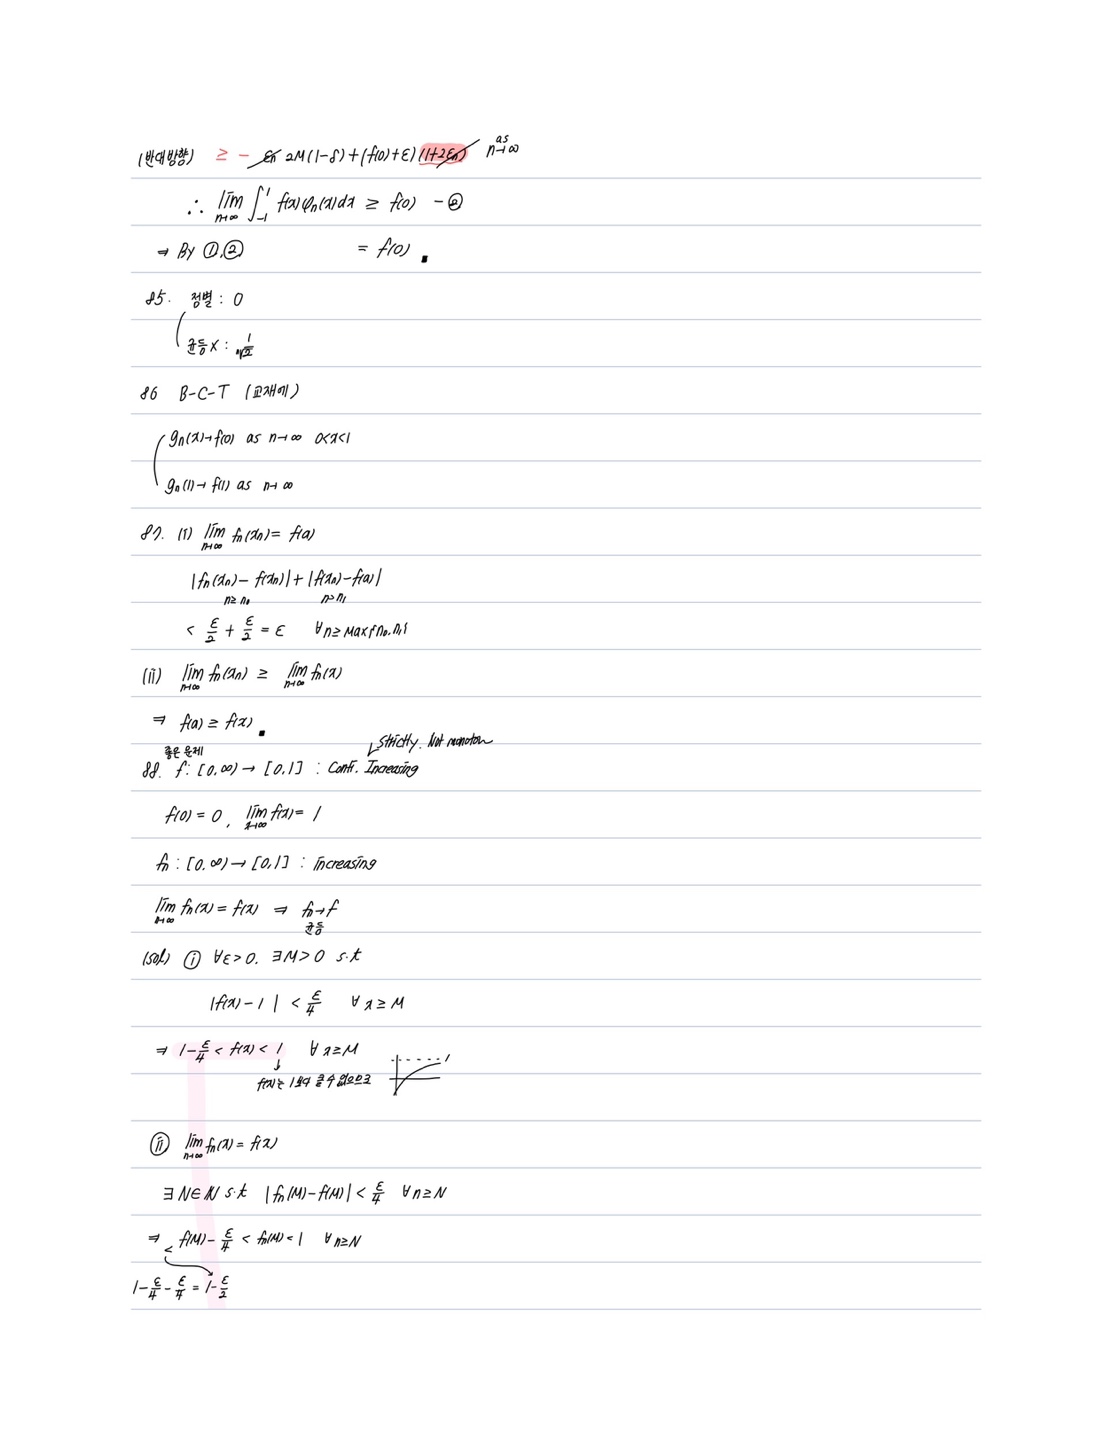 (반대방향) ≥ - εn 2M(1-δ)+(f(0)+ε)(1+2εn) as n→∞
∴ lim n→∞ ∫_{-1}^{1} f(x)φn(x)dx ≥ f(0) - ②
⇒ By ①,② = f(0) ▪
85. 점별 : 0
균등 X : 1/n√2
86 B-C-T (교재에)
gn(x)→f(0) as n→∞ 0<x<1
gn(1)→f(1) as n→∞
87. (i) lim n→∞ fn(xn) = f(a)
|fn(xn) - f(xn)| + |f(xn)-f(a)|
n≥n0 n>n1
< ε/2 + ε/2 = ε ∀n≥Max{n0,n1}
(ii) lim n→∞ fn(xn) ≥ lim n→∞ fn(x)
⇒ f(a) ≥ f(x) ▪
좋은 문제 Strictly. Not monoton
88. f : [0,∞) → [0,1] : Conti. Increasing
f(0) = 0, lim x→∞ f(x) = 1
fn : [0,∞) → [0,1] : increasing
lim n→∞ fn(x) = f(x) ⇒ fn→f
균등
(sol) ⓘ ∀ε>0. ∃M>0 s.t
|f(x)-1| < ε/4 ∀x≥M
⇒ 1-ε/4 < f(x) < 1 ∀x≥M
f(x)는 1보다 클 수 없으므로 1
ⅱ lim n→∞ fn(x) = f(x)
∃N∈ℕ s.t |fn(M)-f(M)| < ε/4 ∀n≥N
⇒ f(M) - ε/4 < fn(M) < 1 ∀n≥N
<
1-ε/4-ε/4 = 1-ε/2